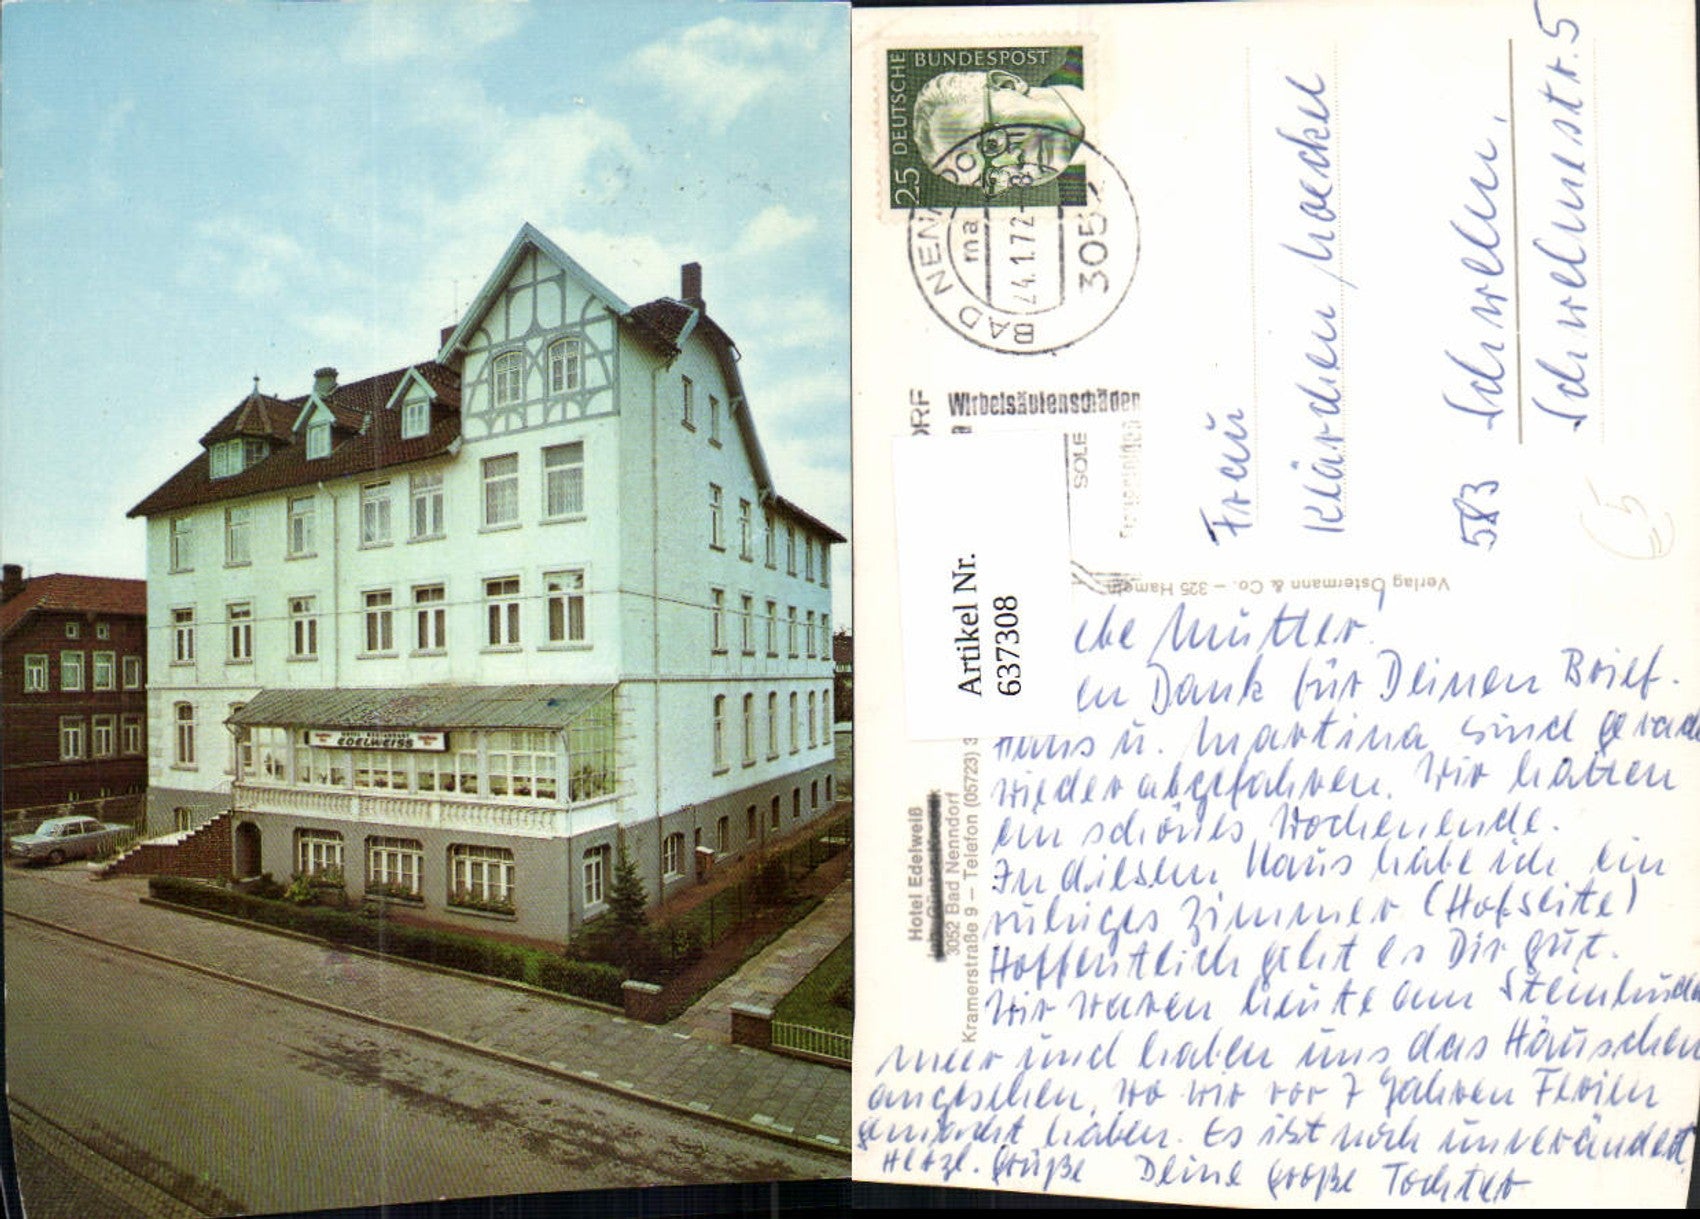 HOTEL RESTAURANT
EDELWEISS
DEUTSCHE BUNDESPOST
25
BAD NENNDORF
ma
24.1.72-8
3052
Wirbelsäulenschäden
SOLE
Artikel Nr.
637308
Frau
Klärchen
583 Schwelm,
Schwelmestr. 5
Verlag Ostermann & Co. – 325 Hameln
Hotel Edelweiß
3052 Bad Nenndorf
Kramerstraße 9 – Telefon (05723) 3
ebe Mutter!
en Dank für Deinen Brief.
Hans u. Martina sind gerade
wieder abgefahren. Wir hatten
ein schönes Wochenende.
In diesem Haus habe ich ein
ruhiges Zimmer (Hofseite)
Hoffentlich geht es Dir gut.
Wir waren heute am Steinhuder
meer und haben uns das Häuschen
angesehen, wo wir vor 7 Jahren Ferien
gemacht haben. Es ist noch unverändert.
Herzl. Grüße Deine große Tochter